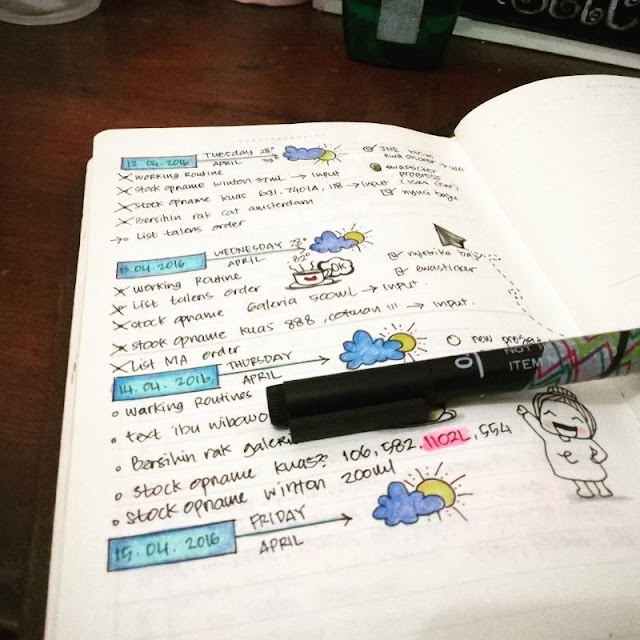 12.04.2016 TUESDAY 28°
APRIL
× working Routine
× stock opname winton 37ml → input
× stock opname kuas 691, 7401A, 118 → input
× Bersihin rak cat amsterdam
→ List talens order
JNE
ewasticker
progress
nyuci baju
13.04.2016 WEDNESDAY
APRIL
OK
× working Routine
× List talens order
× stock opname Galeria 500ml → input
× stock opname kuas 888, cotman 111 → input
× List MA order
nyetrika baju
ewasticker
new
14.04.2016 THURSDAY
APRIL
• working Routines
• text ibu wibowo
• Bersihin rak
• stock opname kuas? 106, 582, 1102L, 554
• stock opname winton 200ml
ITEM
15.04.2016 FRIDAY
APRIL